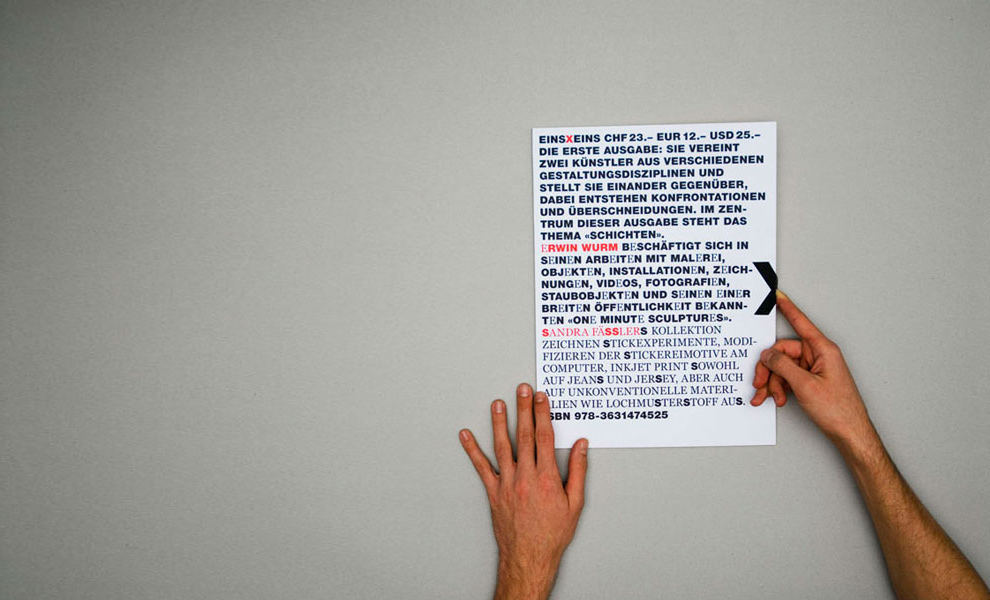 EINSXEINS CHF 23.– EUR 12.– USD 25.–
DIE ERSTE AUSGABE: SIE VEREINT
ZWEI KÜNSTLER AUS VERSCHIEDENEN
GESTALTUNGSDISZIPLINEN UND
STELLT SIE EINANDER GEGENÜBER,
DABEI ENTSTEHEN KONFRONTATIONEN
UND ÜBERSCHNEIDUNGEN. IM ZEN-
TRUM DIESER AUSGABE STEHT DAS
THEMA «SCHICHTEN».
ERWIN WURM BESCHÄFTIGT SICH IN
SEINEN ARBEITEN MIT MALEREI,
OBJEKTEN, INSTALLATIONEN, ZEICH-
NUNGEN, VIDEOS, FOTOGRAFIEN,
STAUBOBJEKTEN UND SEINEN EINER
BREITEN ÖFFENTLICHKEIT BEKANN-
TEN «ONE MINUTE SCULPTURES».
SANDRA FÄSSLERS KOLLEKTION
ZEICHNEN STICKEXPERIMENTE, MODI-
FIZIEREN DER STICKEREIMOTIVE AM
COMPUTER, INKJET PRINT SOWOHL
AUF JEANS UND JERSEY, ABER AUCH
AUF UNKONVENTIONELLE MATERI-
ALIEN WIE LOCHMUSTERSTOFF AUS.
ISBN 978-3631474525